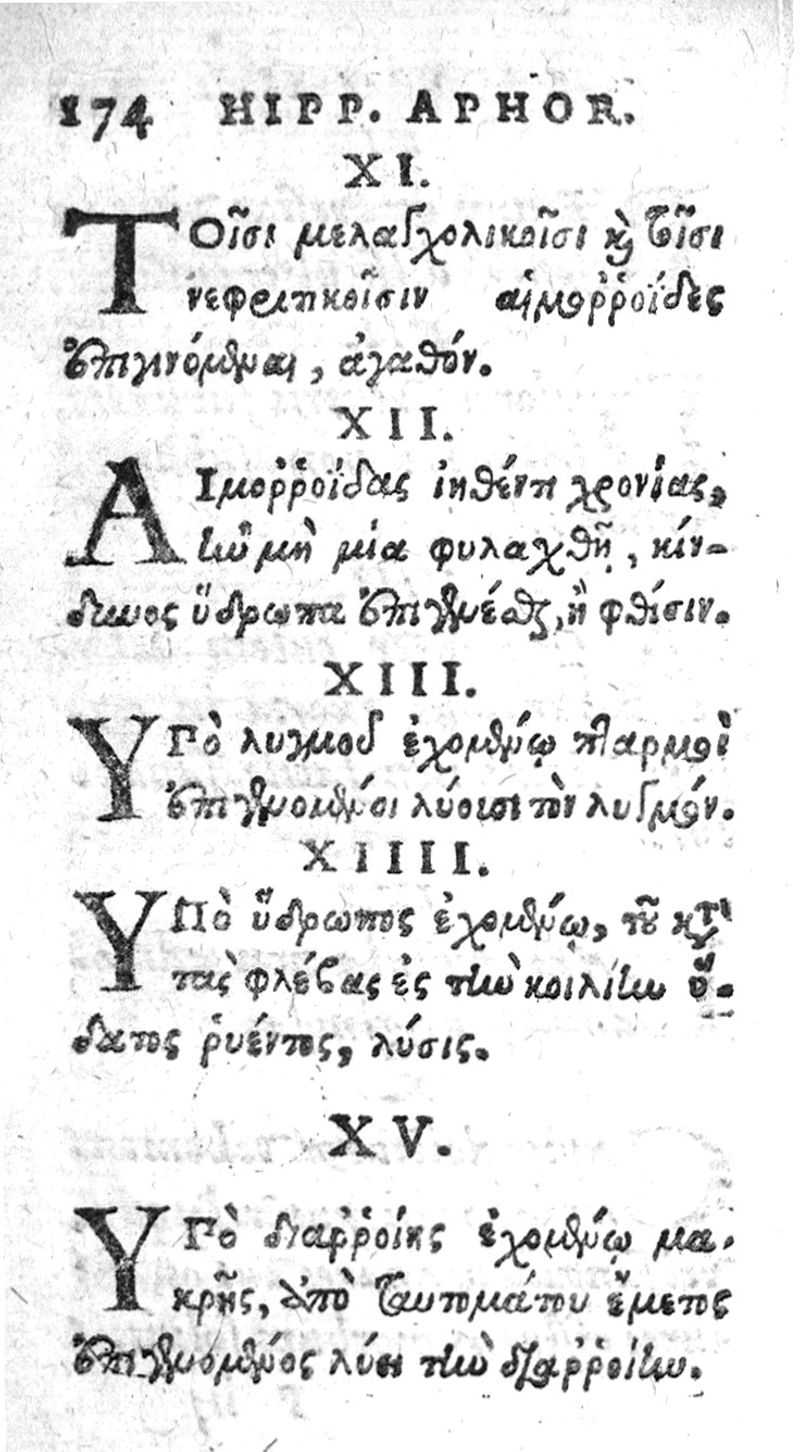 174 HIPP. APHOR.
XI.
ΤΟῖσι μελαγχολικοῖσι καὶ τοῖσι
νεφριτικοῖσιν αἱμοῤῥοΐδες
ἐπιγινόμεναι, ἀγαθόν.
XII.
ΑΙμοῤῥοΐδας ἰηθέντι χρονίας,
ἢν μὴ μία φυλαχθῇ, κίν-
δυνος ὕδρωπα ἐπιγενέσθαι, ἢ φθίσιν.
XIII.
ΥΠὸ λυγμοῦ ἐχομένῳ πταρμοὶ
ἐπιγενομένοι λύουσι τὸν λυγμόν.
XIIII.
ΥΠὸ ὕδρωπος ἐχομένῳ, τοῦ κατὰ
τὰς φλέβας ἐς τὴν κοιλίην ὕ-
δατος ῥυέντος, λύσις.
XV.
ΥΠὸ διαῤῥοίης ἐχομένῳ μα-
κρῆς, ἀπὸ ταυτομάτου ἔμετος
ἐπιγενομένος λύει τὴν διαῤῥοίην.